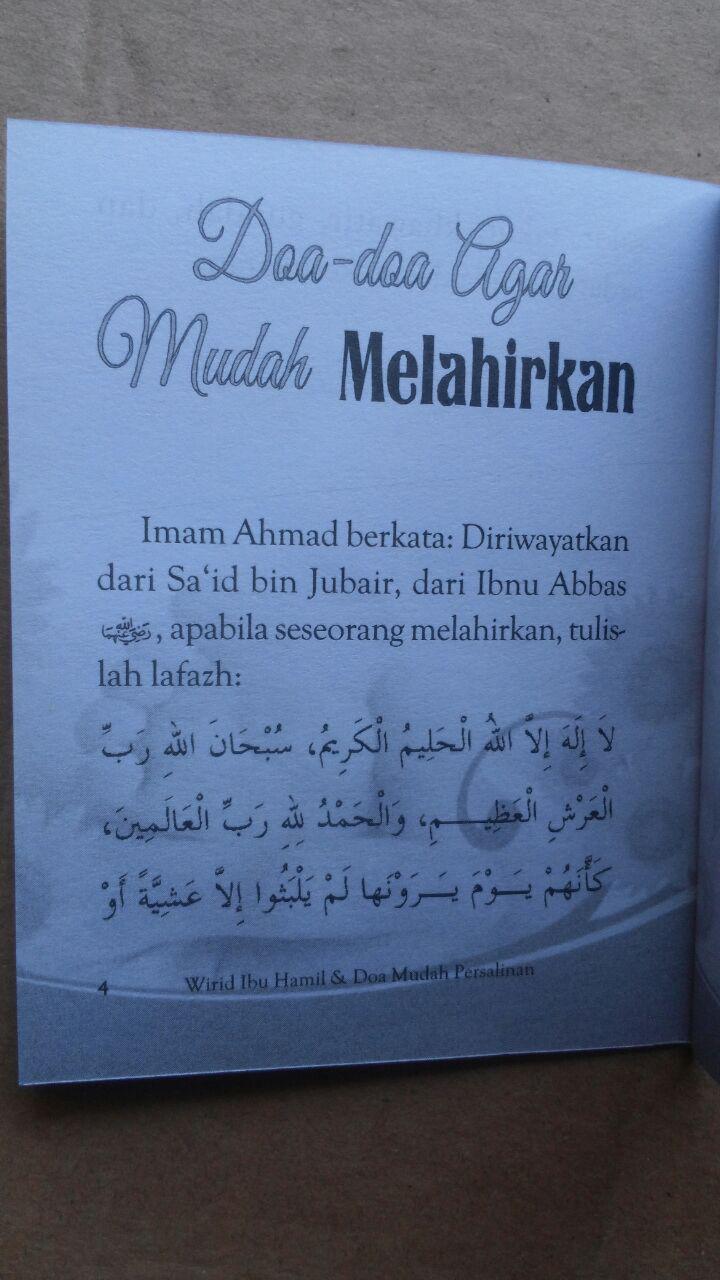 Doa-doa Agar
Mudah Melahirkan
Imam Ahmad berkata: Diriwayatkan
dari Sa‘id bin Jubair, dari Ibnu Abbas
رَضِيَ اللهُ عَنْهُمَا, apabila seseorang melahirkan, tulis-
lah lafazh:
لاَ إِلَهَ إِلاَّ اللهُ الْحَلِيمُ الْكَرِيمُ، سُبْحَانَ اللهِ رَبِّ
الْعَرْشِ الْعَظِيـــمِ، وَالْحَمْدُ لِلهِ رَبِّ الْعَالَمِينَ،
كَأَنَّهُمْ يَـــوْمَ يَـــرَوْنَها لَمْ يَلْبَثُوا إِلاَّ عَشِيَّةً أَوْ
4 Wirid Ibu Hamil & Doa Mudah Persalinan